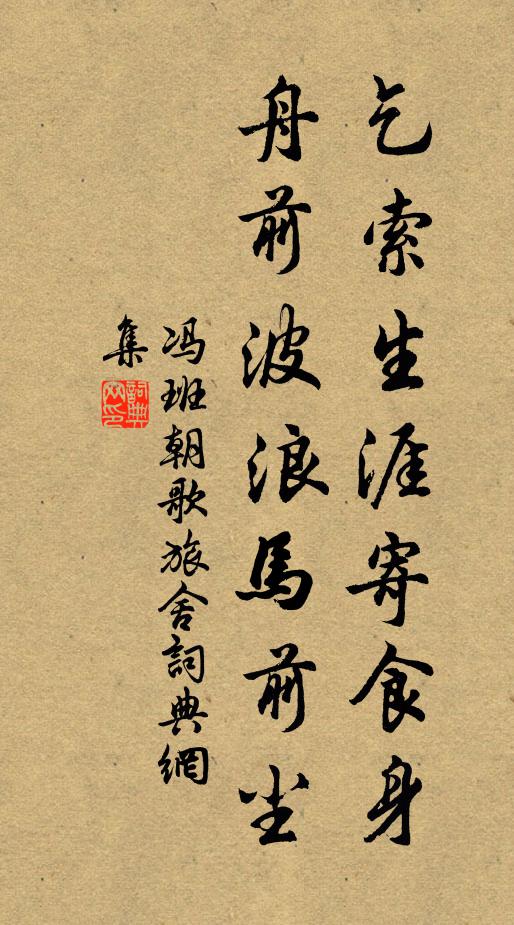 乞索生涯寄食身
舟前波浪馬前尘
冯班朝歌旅舍詞典網
集
詞典網印